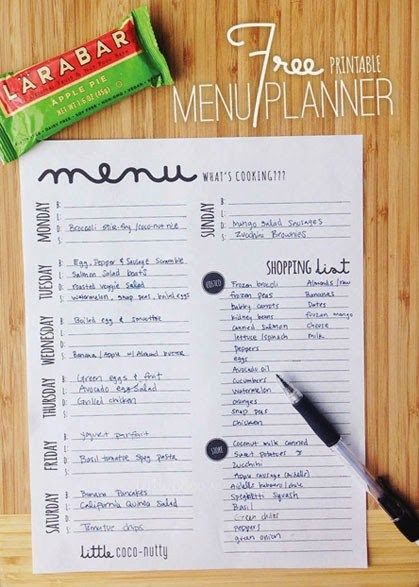 LÄRABAR
APPLE PIE
Free PRINTABLE
MENU PLANNER
menu WHAT'S COOKING???
MONDAY
B:
L:
D: Broccoli stir-fry /coconut rice
S:
TUESDAY
B: Egg, Pepper & Sausage Scramble
L: Salmon Salad boats
D: roasted veggie salad
S: watermelon, snap peas, boiled eggs
WEDNESDAY
B: Boiled egg & smoothie
L:
D:
S: Banana / Apple w/ Almond butter
THURSDAY
B: Green eggs & fruit
L: Avocado egg salad
D: Grilled chicken
S:
FRIDAY
B: yogurt parfait
L:
D: Basil tomatoe Spag pasta
S:
SATURDAY
B: Banana Pancakes
L: California Quinoa Salad
D:
S: Tomatoe chips
SUNDAY
B:
L:
D: Mango Salad Sausages
S: Zucchini Brownies
SHOPPING list
COSTCO
Frozen brocoli
frozen peas
babby carrots
kidney beans
canned salmon
lettuce /spinach
peppers
eggs
Avocado oil
cucumbers
Watermelon
oranges
snap peas
chicken
Almonds / raw
Bananas
Dates
frozen mango
Cheese
milk
STORE
Coconut milk canned
Sweet potatoes
Zucchini
Apple sausage (Aidells)
Aidells
Spaghetti Squash
Basil
Green chiles
peppers
green onion
little coco-nutty